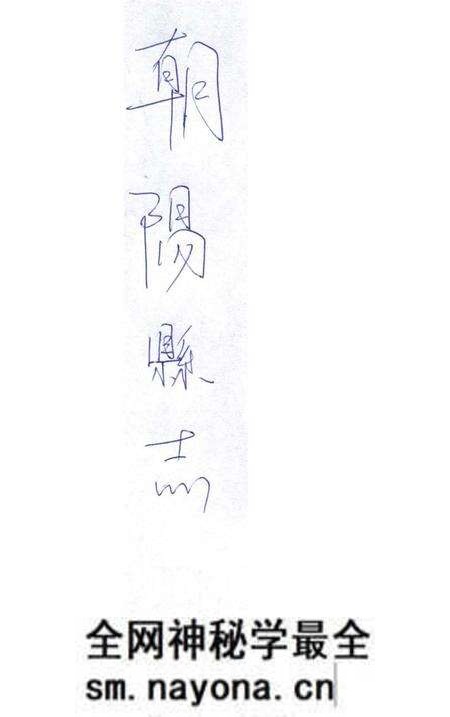 朝陽縣志
全网神秘学最全
sm.nayona.cn